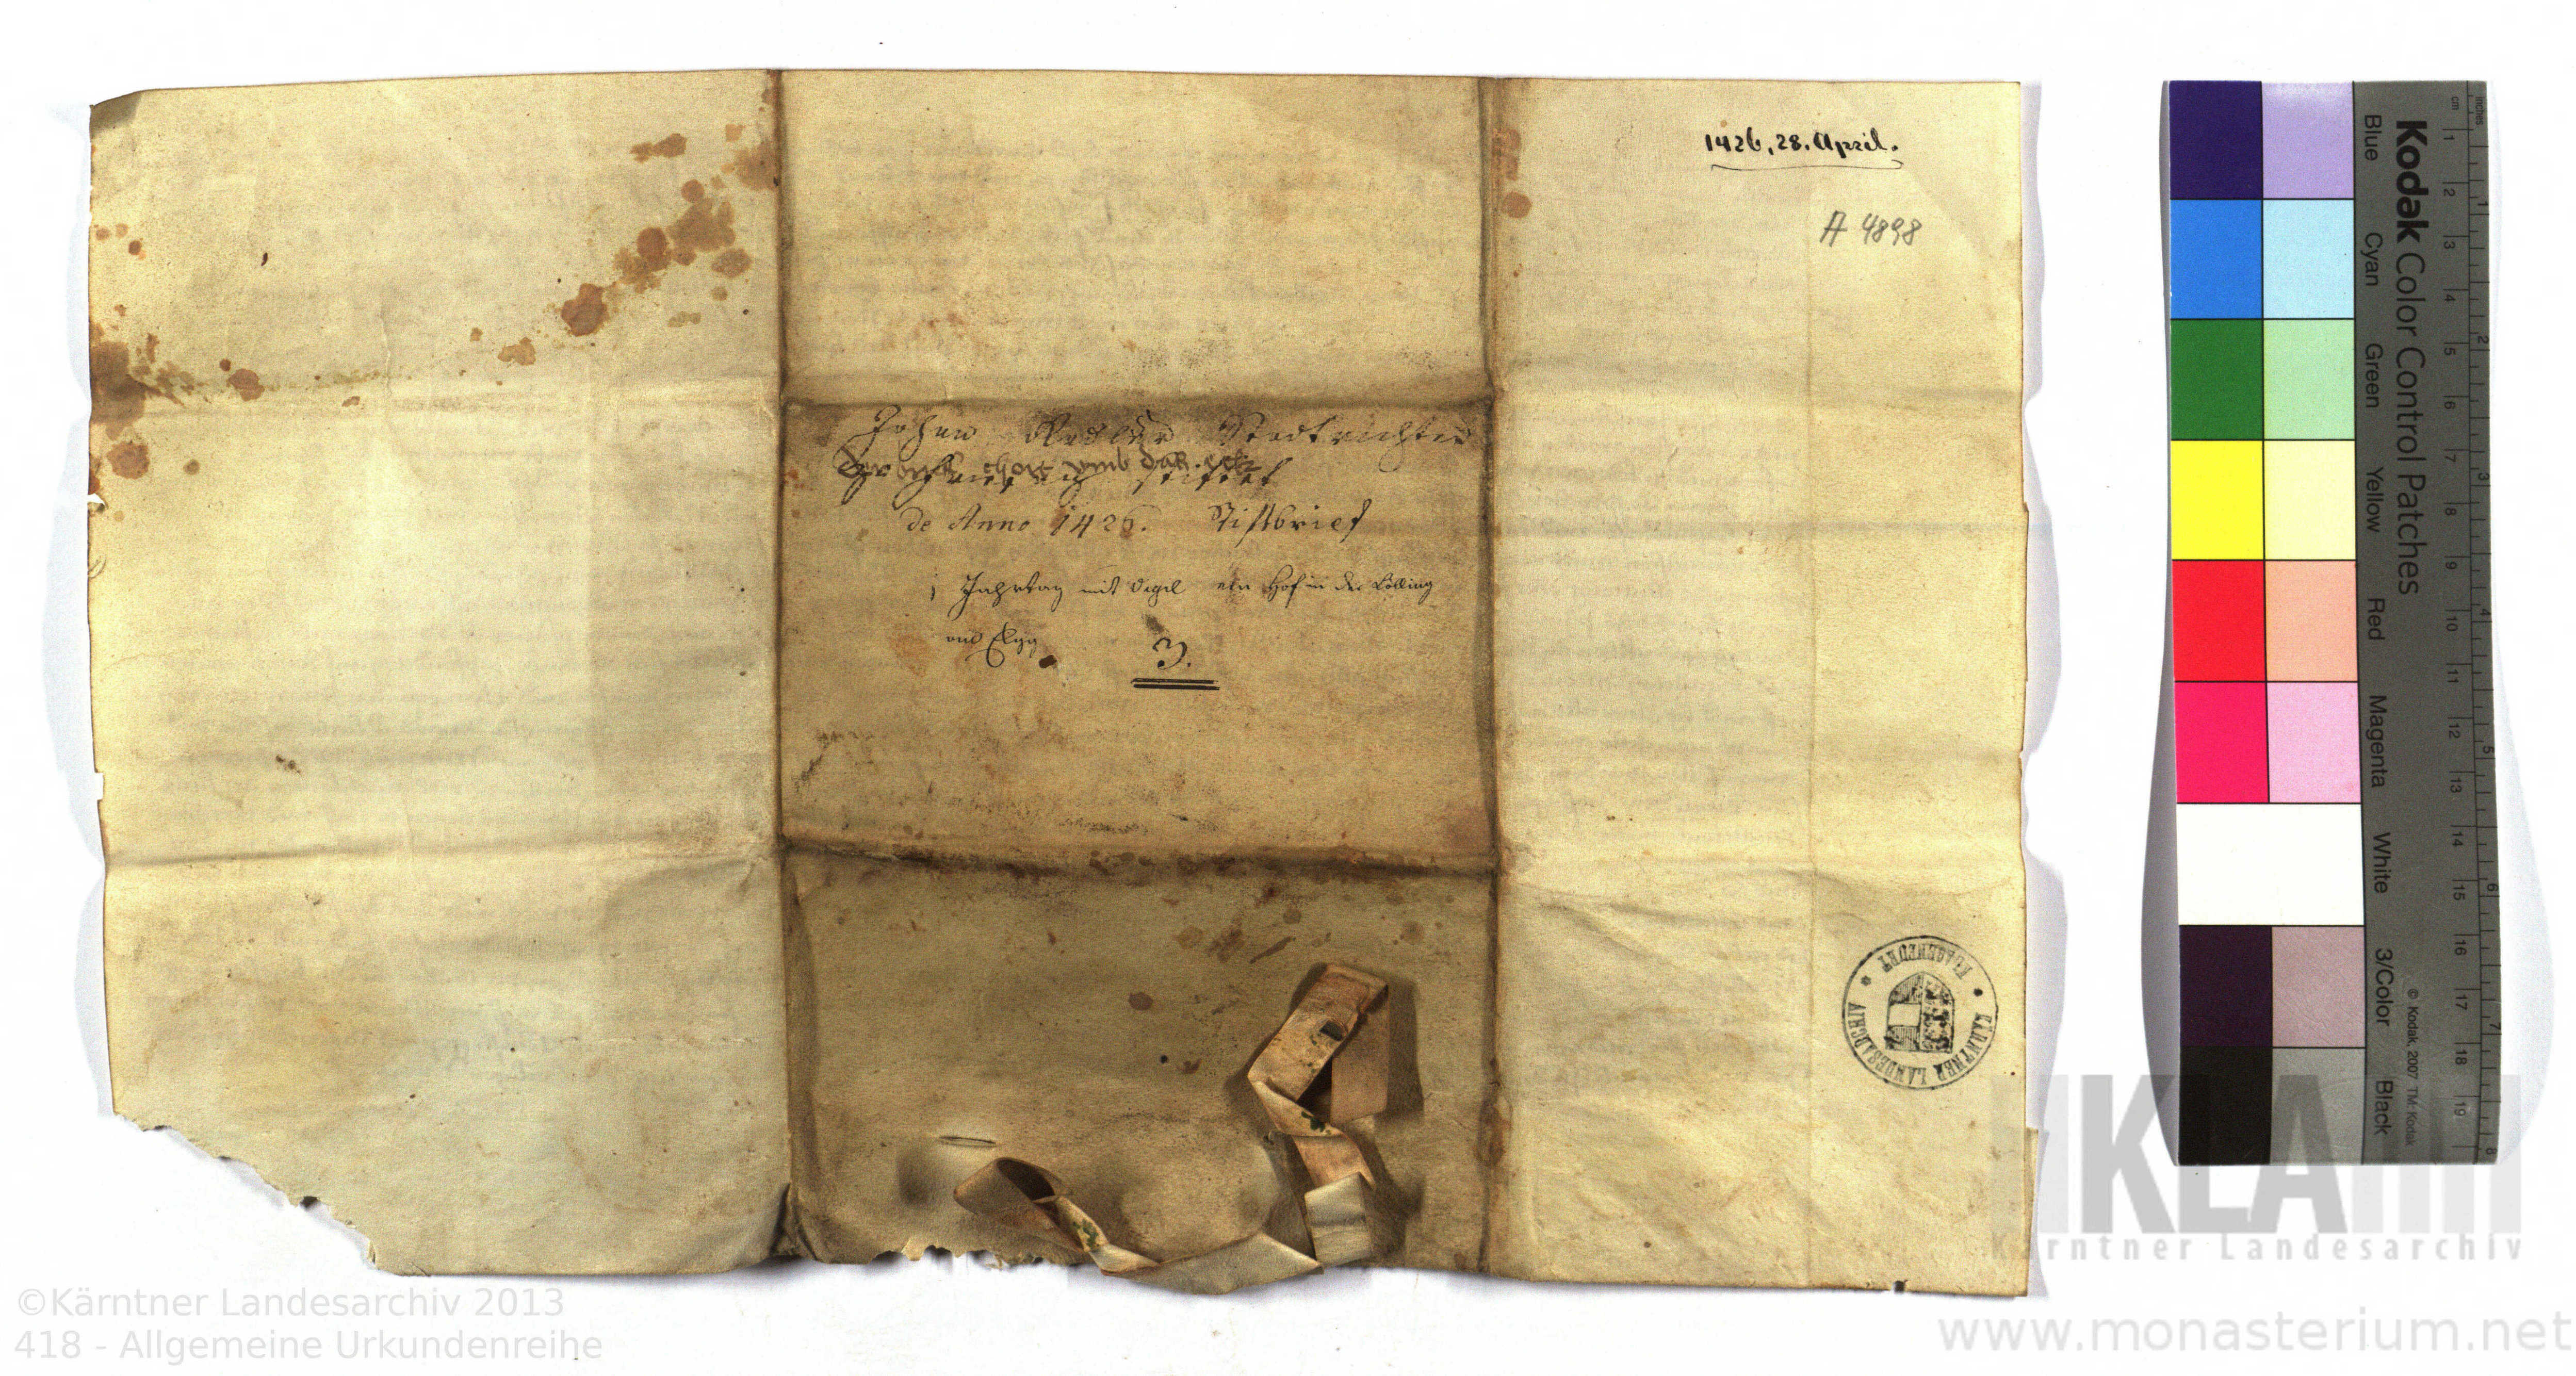 1426, 28. April.
A 4898
Johan Stadtrichter
stifftet
de Anno 1426. Stifftbrief
1 Jahrtag mit Vigil ein Hof in der Lölling
und Egg
3.
KÄRNTNER LANDESARCHIV
* KLAGENFURT *
Kodak Color Control Patches
Blue Cyan Green Yellow Red Magenta White 3/Color Black
© Kodak, 2007 TM: Kodak
cm 1 2 3 4 5 6 7 8 9 10 11 12 13 14 15 16 17 18 19
inches 1 2 3 4 5 6 7 8
KLA
Kärntner Landesarchiv
©Kärntner Landesarchiv 2013
418 - Allgemeine Urkundenreihe
www.monasterium.net